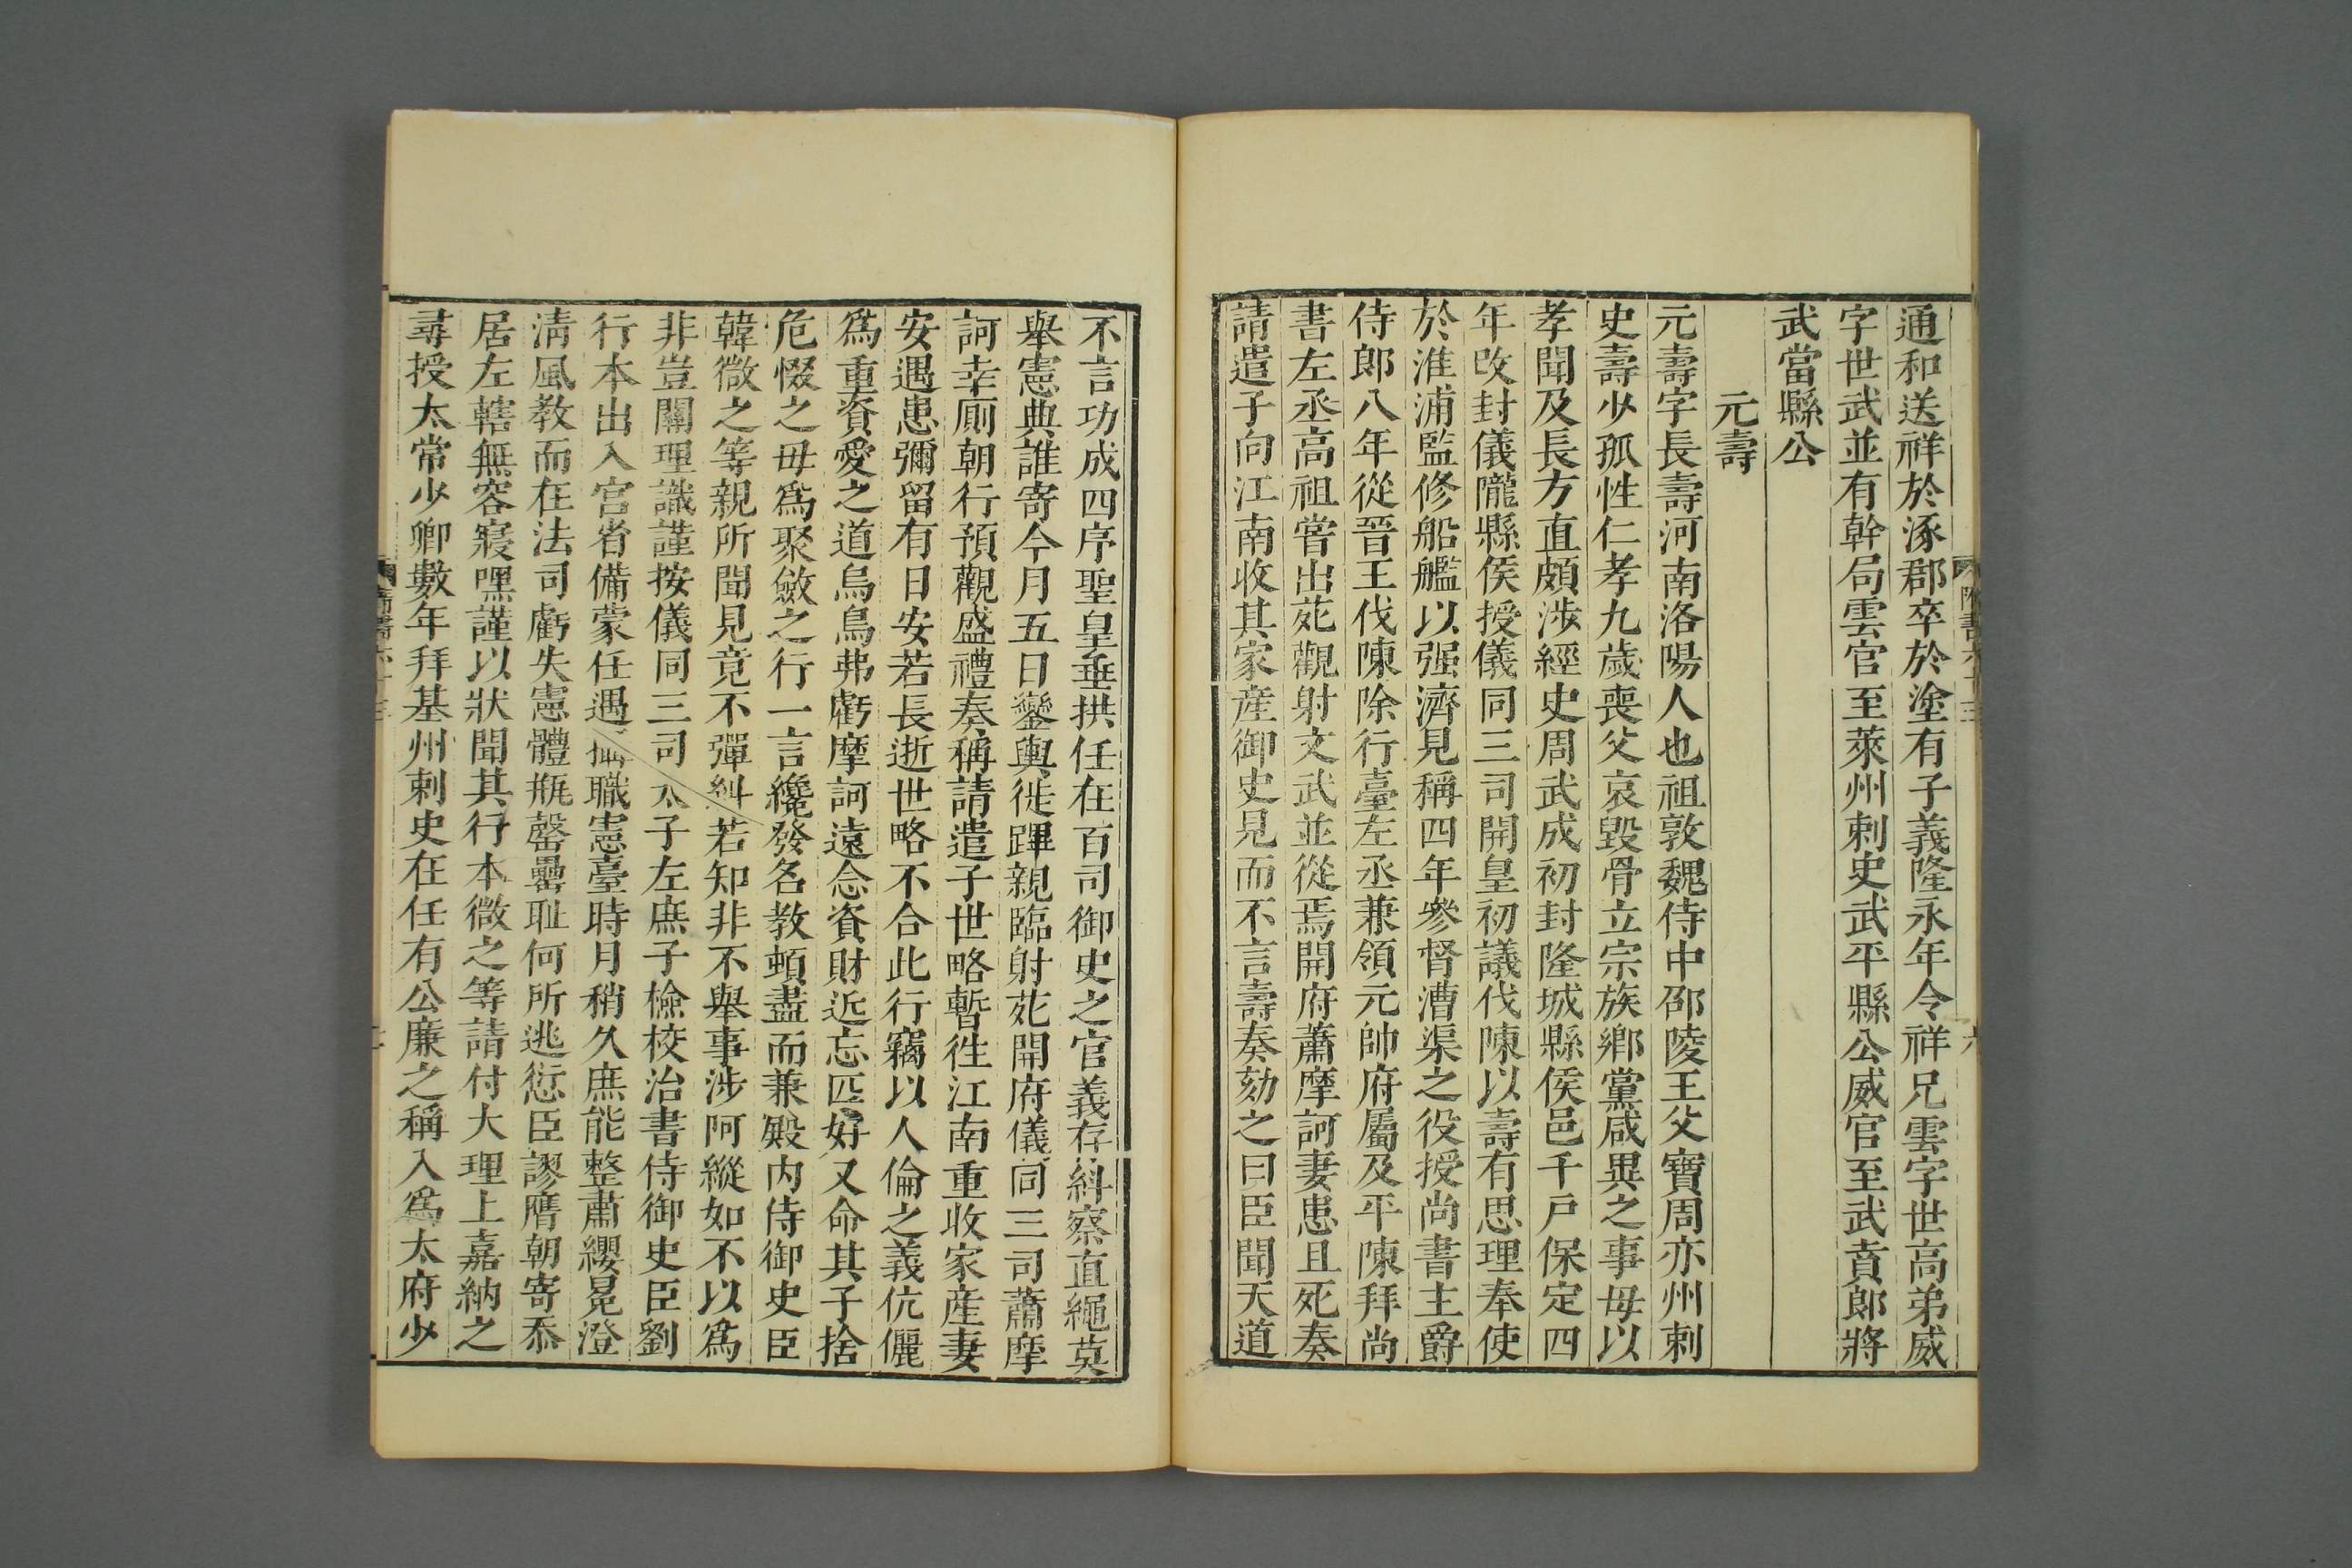 通和送祥於涿郡卒於塗有子義隆永年令祥兄雲字世高弟威
字世武並有幹局雲官至萊州刺史武平縣公威官至武賁郎將
武當縣公
元壽
元壽字長壽河南洛陽人也祖敦魏侍中邵陵王父寶周亦州刺
史壽少孤性仁孝九歲喪父哀毀骨立宗族鄉黨咸異之事母以
孝聞及長方直頗涉經史周武成初封隆城縣侯邑千戶保定四
年改封儀隴縣侯授儀同三司開皇初議伐陳以壽有思理奉使
於淮浦監修船艦以强濟見稱四年參督漕渠之役授尚書主爵
侍郎八年從晉王伐陳除行臺左丞兼領元帥府屬及平陳拜尚
書左丞高祖嘗出苑觀射文武並從焉開府蕭摩訶妻患且死奏
請遣子向江南收其家産御史見而不言壽奏劾之曰臣聞天道
不言功成四序聖皇垂拱任在百司御史之官義存糾察直繩莫
舉憲典誰寄今月五日鑾輿徙蹕親臨射苑開府儀同三司蕭摩
訶幸厠朝行預觀盛禮奏稱請遣子世略暫徃江南重收家産妻
安遇患彌留有日安若長逝世略不合此行竊以人倫之義伉儷
爲重資愛之道烏鳥弗虧摩訶遠念資財近忘匹好又命其子捨
危惙之母爲聚斂之行一言纔發名教頓盡而兼殿内侍御史臣
韓微之等親所聞見竟不彈糾若知非不舉事涉阿縱如不以爲
非豈關理識謹按儀同三司太子左庶子檢校治書侍御史臣劉
行本出入宮省備蒙任遇攝職憲臺時月稍久庶能整肅纓冕澄
淸風教而在法司虧失憲體瓶罄罍耻何所逃愆臣謬膺朝寄忝
居左轄無容寢嘿謹以狀聞其行本微之等請付大理上嘉納之
尋授太常少卿數年拜基州刺史在任有公廉之稱入爲太府少